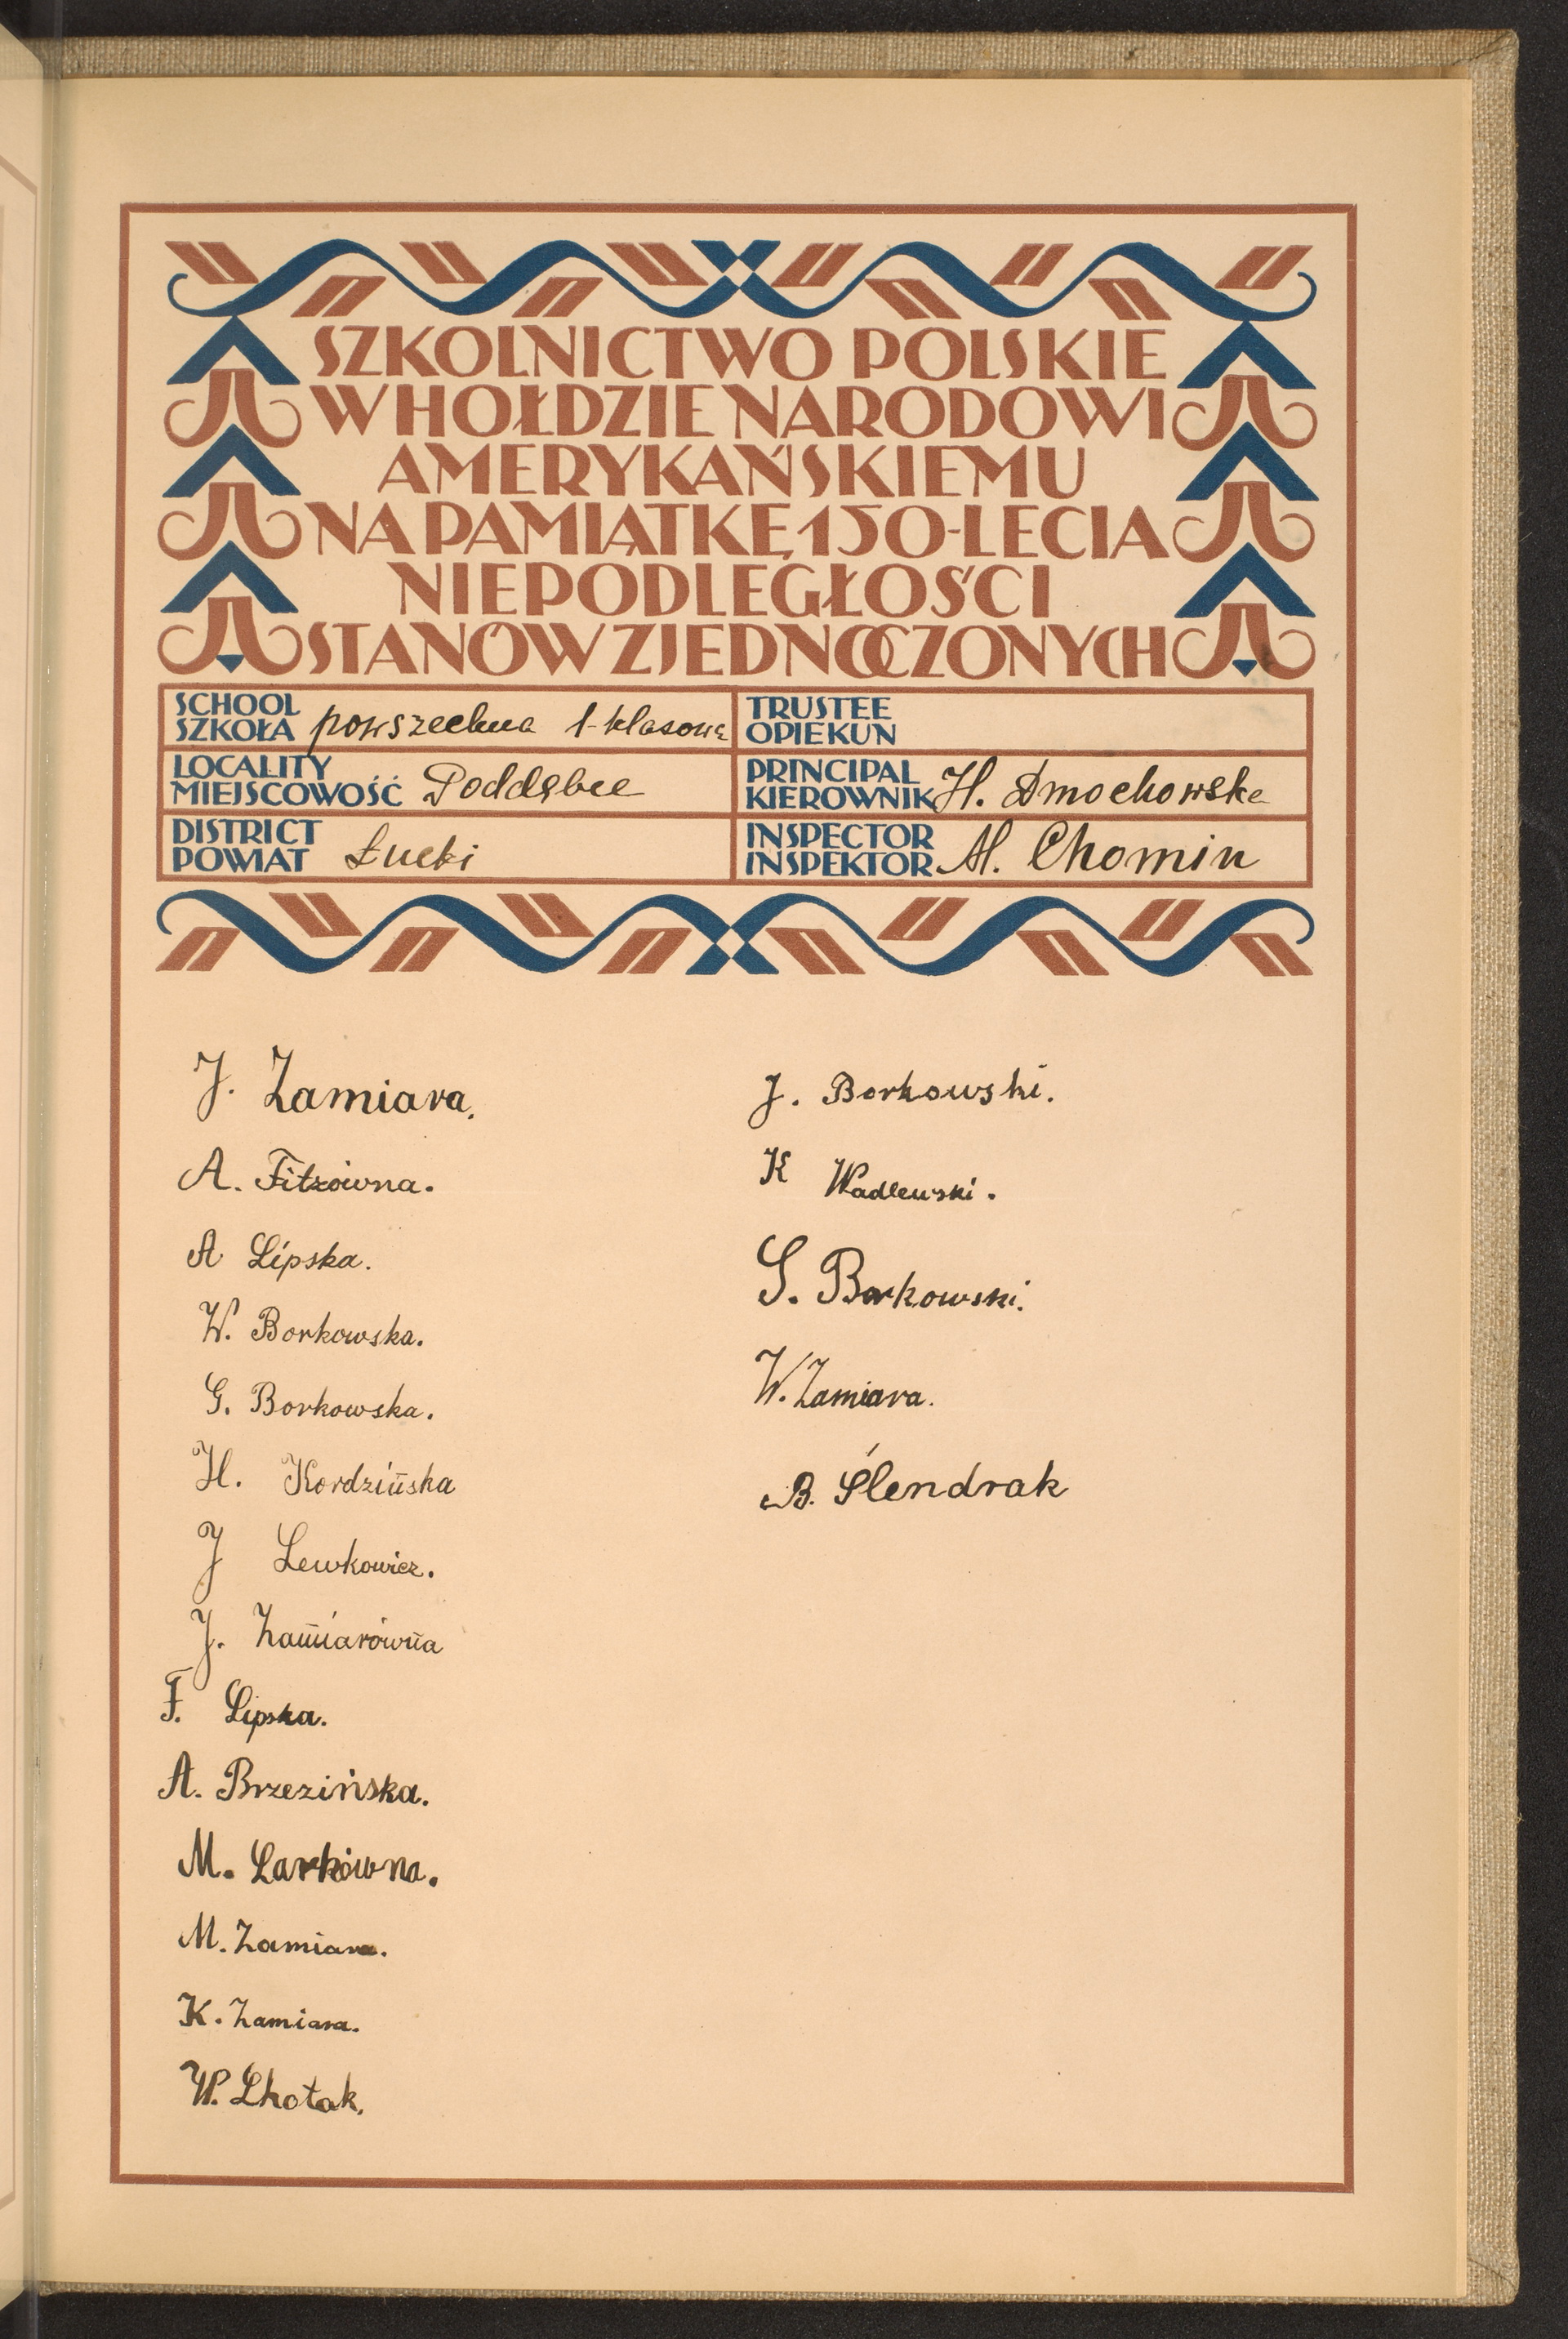 SZKOLNICTWO POLSKIE
W HOŁDZIE NARODOWI
AMERYKAŃSKIEMU
NA PAMIĄTKĘ 150-LECIA
NIEPODLEGŁOŚCI
STANÓW ZJEDNOCZONYCH
SCHOOL
SZKOŁA powszechna 1-klasowa
TRUSTEE
OPIEKUN
LOCALITY
MIEJSCOWOŚĆ Poddębce
PRINCIPAL
KIEROWNIK H. Dmochowska
DISTRICT
POWIAT Łucki
INSPECTOR
INSPEKTOR M. Chomin
J. Zamiara.
A. Fitzówna.
A Lipska.
W. Borkowska.
G. Borkowska.
H. Kordzińska
J Lewkowicz.
J. Zamiarówna
F. Lipska.
A. Brzezińska.
M. Larkówna.
M. Zamiara.
K. Zamiara.
W. Lhotak.
J. Borkowski.
K Wadlewski.
S. Borkowski.
W. Zamiara.
B. Ślendrak